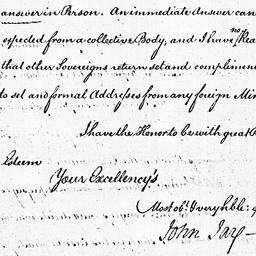 answer in Person. An immediate Answer can
expected from a collective Body, and I have no Rea
that other Sovereigns return set and complimen
to set and formal Addresses from any foreign Min
I have the Honor to be with great
Esteem
Your Excellency's
Most obt. & very hble:
John Jay —